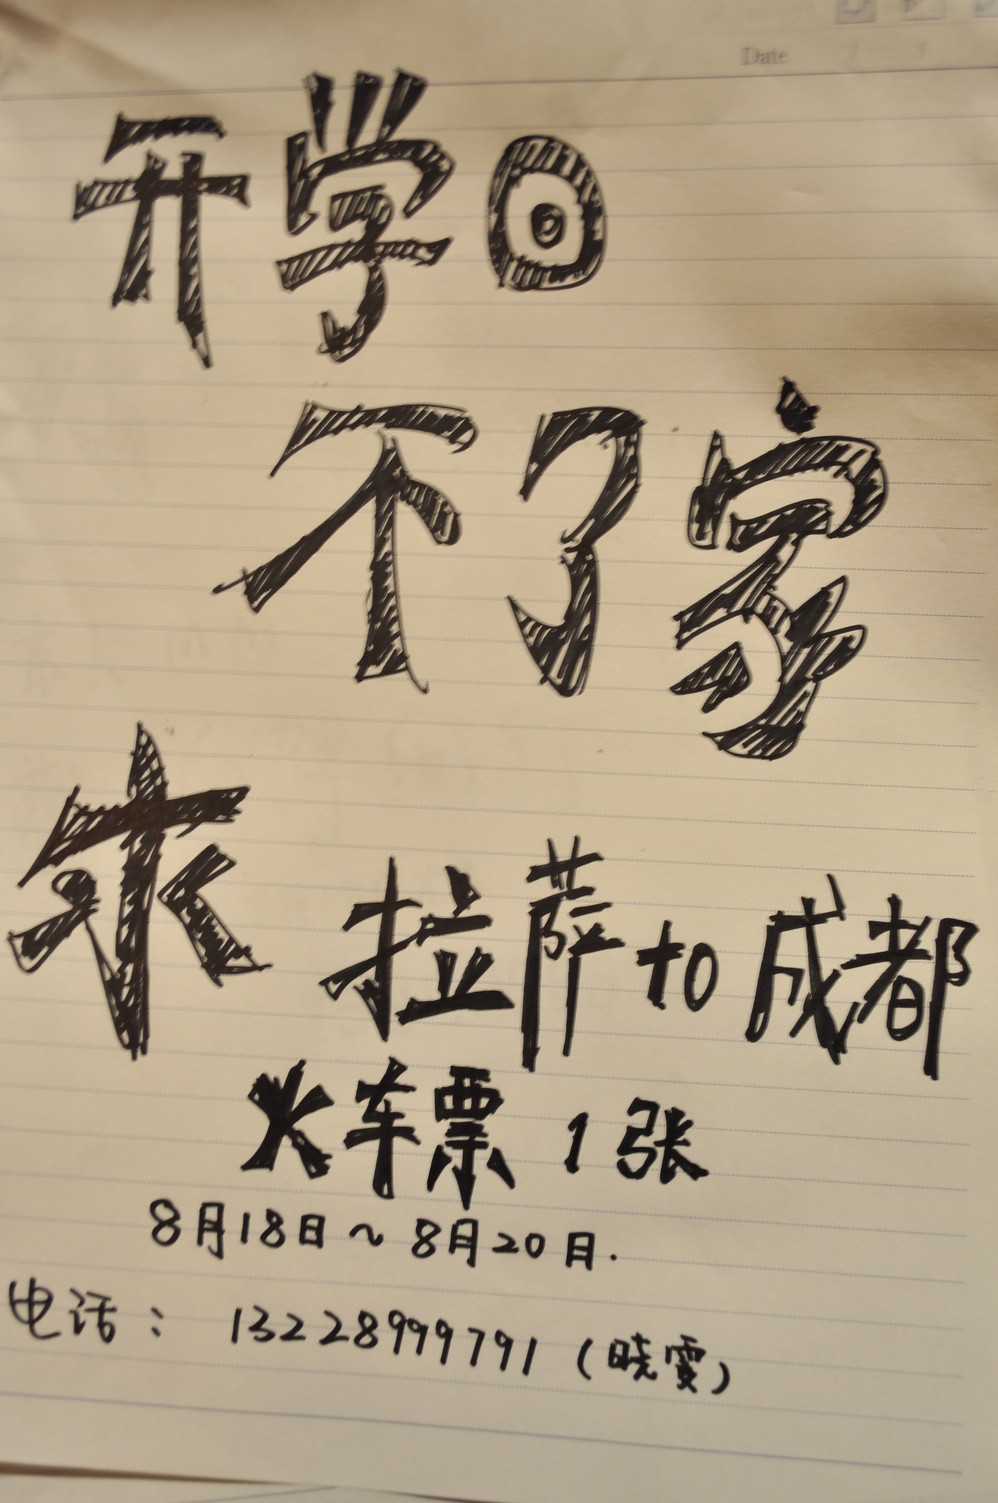 Date
开学回
不了家
求 拉萨 to 成都
火车票 1 张
8月18日~8月20日.
电话: 13228999791 (晓雯)